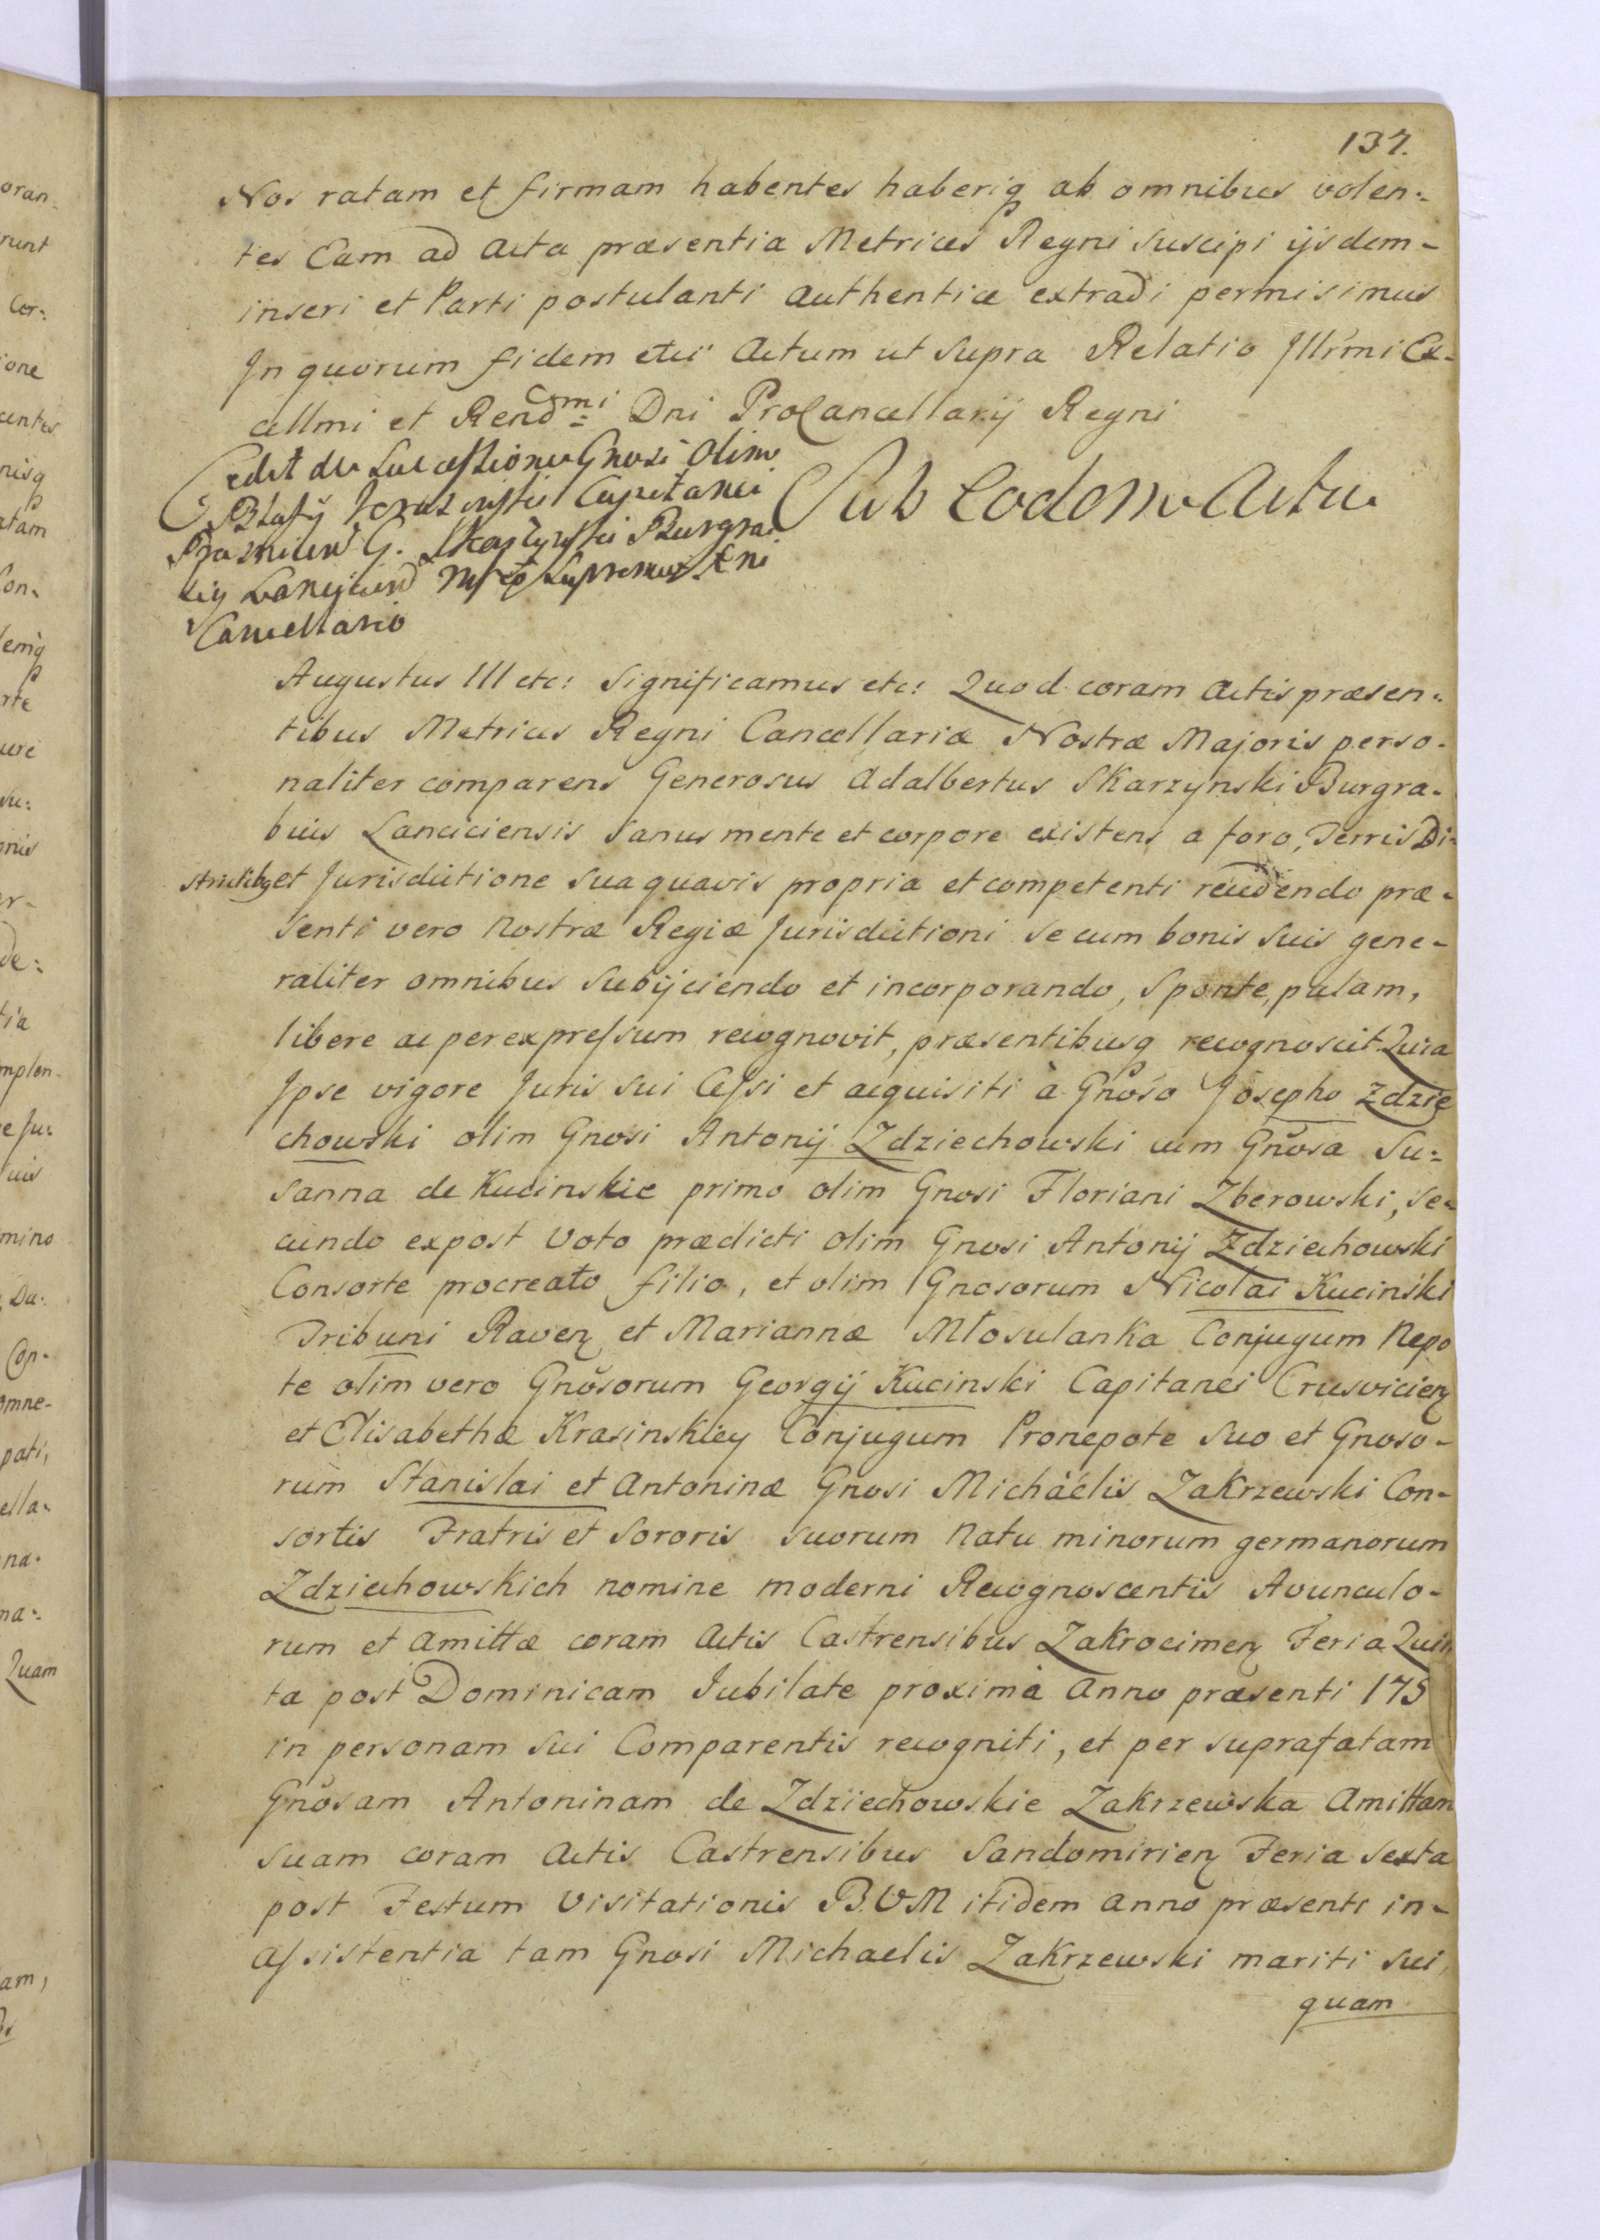 137.
Nos ratam et firmam habentes haberiq ab omnibus volen:
tes Eam ad Acta præsentia Metrices Regni suscipi ijsdem-
inseri et Parti postulanti authentice extradi permisimus
In quorum fidem etc: Actum ut supra Relatio Illrmi Ex-
cellmi et Rendmi Dni ProCancellarij Regni
de Successione Gnosi Olim
Blasij Krasinski Capitanei
G. Skarzynski Burgra
Supremus
Cancellario
Sub Eodem Actu
Augustus III etc: Significamus etc: Quod coram Actis præsen:
tibus Metrices Regni Cancellariæ Nostræ Majoris perso-
naliter comparens Generosus Adalbertus Skarzynski Burgra-
bius Lanciciensis sanus mente et corpore existens a foro, Terris Di-
strictibq et Jurisdictione sua quavis propria et competenti recedendo præ-
senti vero Nostræ Regiæ Jurisdictioni se cum bonis suis gene-
raliter omnibus subijciendo et incorporando, sponte, palam,
libere ac per expressum recognovit, præsentibusq recognoscit. Quia
Ipse vigore Juris sui Cessi et acquisiti à Gnoso Josepho Zdzie
chowski olim Gnosi Antonij Zdziechowski cum Gnosa Su:
sanna de Kucinskie primo olim Gnosi Floriani Zberowski, se-
cundo expost Voto prædicti olim Gnosi Antonij Zdziechowski
Consorte procreato filio, et olim Gnosorum Nicolai Kucinski
Tribuni Raven et Mariannæ Młosulanka Conjugum Nepo
te olim vero Gnosorum Georgij Kucinski Capitanei Crusvicien
et Elisabethæ Krasinskiey Conjugum Pronepote suo et Gnoso-
rum Stanislai et Antoninæ Gnosi Michaëlis Zakrzewski Con-
sortis Fratris et Sororis suorum natu minorum germanorum
Zdziechowskich nomine moderni Recognoscentis Avunculo-
rum et Amittæ coram Actis Castrensibus Zakrocimen Feria Quin
ta post Dominicam Jubilate proximè Anno præsenti 175
in personam sui Comparentis recogniti, et per suprafatam
Gnosam Antoninam de Zdziechowskie Zakrzewska Amittam
suam coram Actis Castrensibus Sandomirien Feria sexta
post Festum Visitationis B.V.M itidem Anno præsenti in-
assistentia tam Gnosi Michaelis Zakrzewski mariti sui,
quam